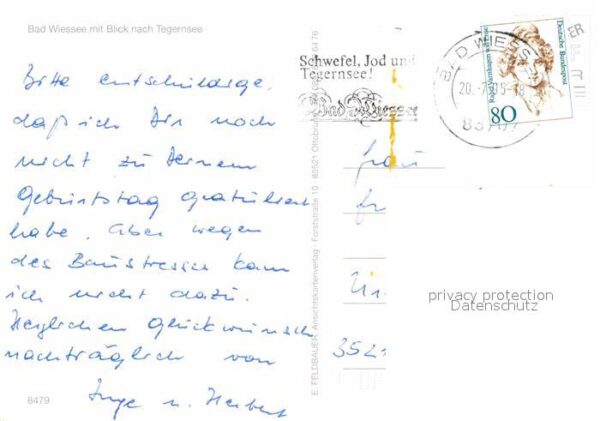 Bad Wiessee mit Blick nach Tegernsee
Bitte entschuldige,
daß ich Dir noch
nicht zu Deinem
Geburtstag gratuliert
habe. Aber wegen
des Baustresses kam
ich nicht dazu.
Herzlichen Glückwunsch
nachträglich von
Inge u. Herbert
8479
E. FELDBAUER Ansichtskartenverlag · Forststraße 10 · 85521 Ottobrunn
Schwefel, Jod und
Tegernsee!
Bad Wiessee
BAD WIESSEE
20.-7.
83707
Deutsche Bundespost
Rahel Varnhagen von Ense
80
Frau
3521
privacy protection
Datenschutz